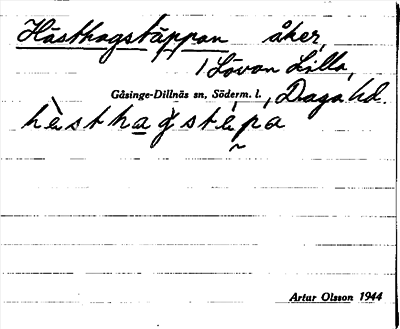 Hästhagstäppan åker,
/ Lövön Lilla,
Gåsinge-Dillnäs sn, Söderm. l., Daga hd.
hèsthagstép̰a
Artur Olsson 1944